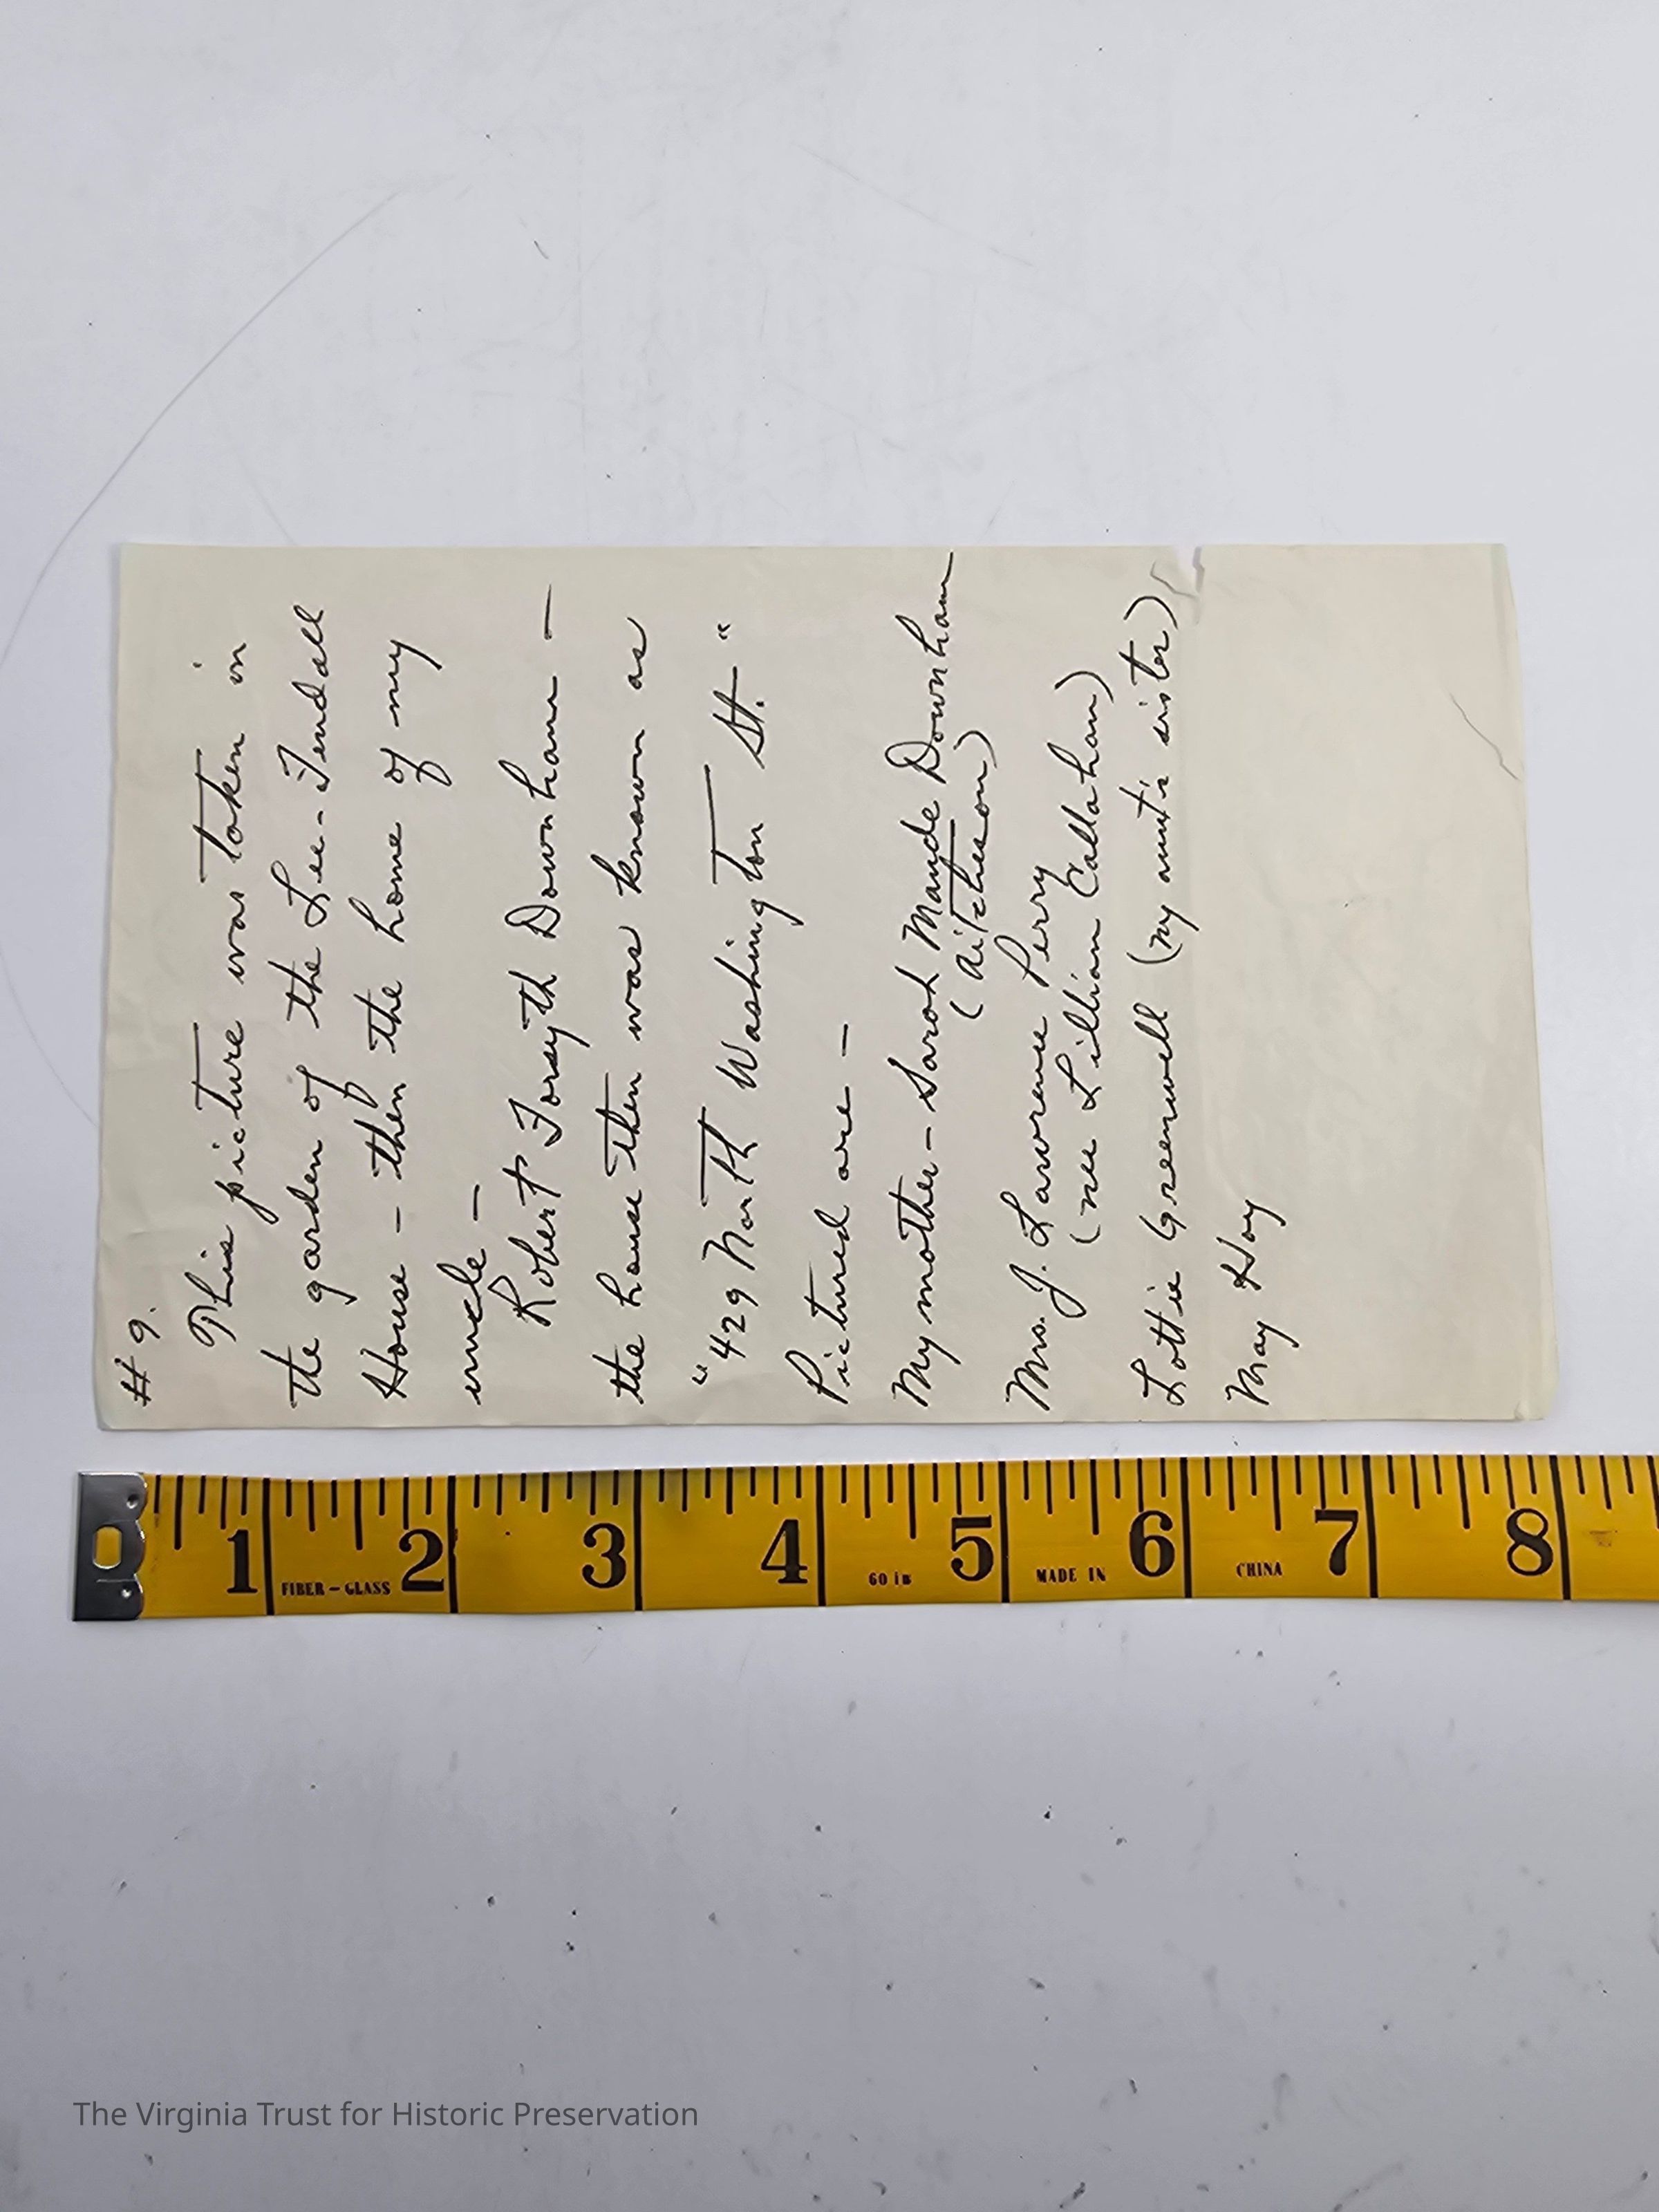 # 9.
This picture was taken in
the garden of the Lee-Fendall
House - then the home of my
uncle -
Robert Forsyth Downham -
the house then was known as
"429 North Washington St."
Pictured are -
My mother - Sarah Maude Downham
(Aitcheson)
Mrs. J. Lawrence Perry
(nee Lillian Callahan)
Lottie Greenwell (my aunt's sister)
May Hoy
1 FIBER-GLASS 2 3 4 60 in 5 MADE IN 6 CHINA 7 8
The Virginia Trust for Historic Preservation